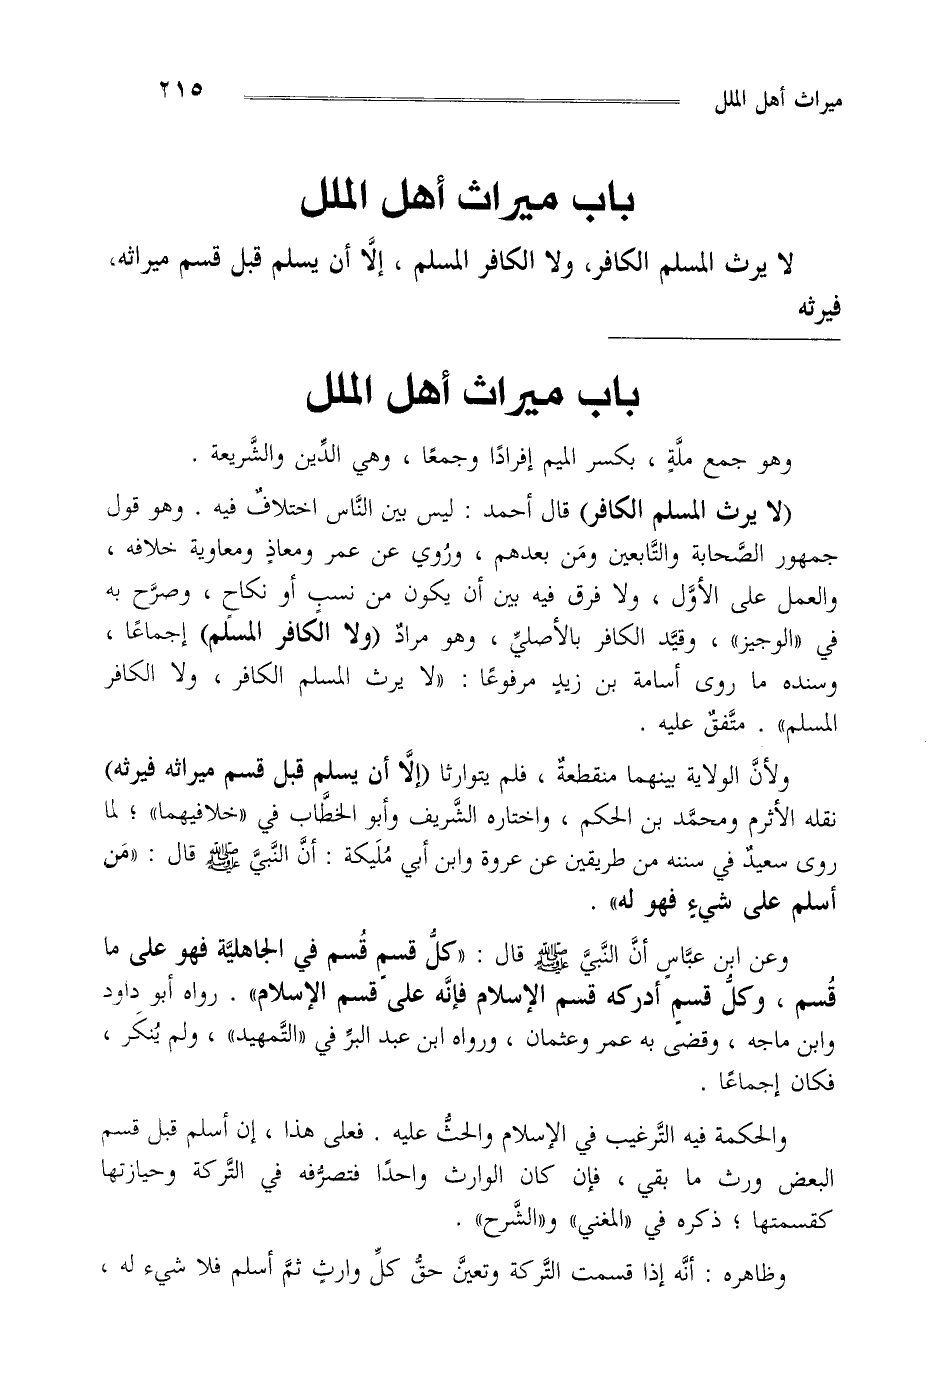 ميراث أهل الملل ٢١٥
باب ميراث أهل الملل
لا يرث المسلم الكافر، ولا الكافر المسلم ، إلَّا أن يسلم قبل قسم ميراثه،
فيرثه
باب ميراث أهل الملل
وهو جمع ملَّةٍ ، بكسر الميم إفرادًا وجمعًا ، وهي الدِّين والشَّريعة .
(لا يرث المسلم الكافر) قال أحمد : ليس بين النَّاس اختلافٌ فيه . وهو قول
جمهور الصَّحابة والتَّابعين ومَن بعدهم ، ورُوي عن عمر ومعاذٍ ومعاوية خلافه ،
والعمل على الأوَّل ، ولا فرق فيه بين أن يكون من نسبٍ أو نكاحٍ ، وصرَّح به
في «الوجيز» ، وقيَّد الكافر بالأصليِّ ، وهو مرادٌ (ولا الكافر المسلم) إجماعًا ،
وسنده ما روى أسامة بن زيدٍ مرفوعًا : «لا يرث المسلم الكافر ، ولا الكافر
المسلم» . متَّفقٌ عليه .
ولأنَّ الولاية بينهما منقطعةٌ ، فلم يتوارثا (إلَّا أن يسلم قبل قسم ميراثه فيرثه)
نقله الأثرم ومحمَّد بن الحكم ، واختاره الشَّريف وأبو الخطَّاب في «خلافيهما» ؛ لما
روى سعيدٌ في سننه من طريقين عن عروة وابن أبي مُلَيكة : أنَّ النَّبيَّ ﷺ قال : «مَن
أسلم على شيءٍ فهو له» .
وعن ابن عبَّاسٍ أنَّ النَّبيَّ ﷺ قال : «كلُّ قسمٍ قُسم في الجاهليَّة فهو على ما
قُسم ، وكلُّ قسمٍ أدركه قسم الإسلام فإنَّه على قسم الإسلام» . رواه أبو داود
وابن ماجه ، وقضى به عمر وعثمان ، ورواه ابن عبد البرِّ في «التَّمهيد» ، ولم يُنكَر ،
فكان إجماعًا .
والحكمة فيه التَّرغيب في الإسلام والحثُّ عليه . فعلى هذا ، إن أسلم قبل قسم
البعض ورث ما بقي ، فإن كان الوارث واحدًا فتصرُّفه في التَّركة وحيازتها
كقسمتها ؛ ذكره في «المغني» و«الشَّرح» .
وظاهره : أنَّه إذا قسمت التَّركة وتعينَّ حقُّ كلِّ وارثٍ ثمَّ أسلم فلا شيء له ،